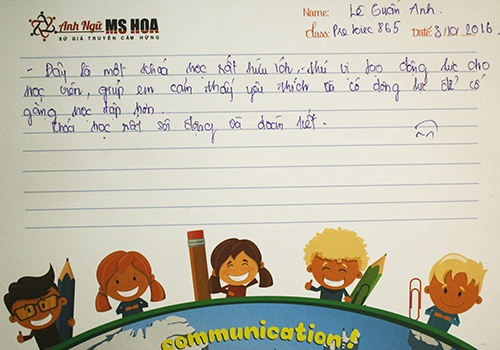 Anh Ngữ MS HOA
SỨ GIẢ TRUYỀN CẢM HỨNG
Name: Lê Tuấn Anh.
Class: Pre toeic 865 Date: 3/10/2016
- Đây là một khoá học rất hữu ích, thú vị tạo động lực cho
học viên, giúp em cảm thấy yêu thích và có động lực để cố
gắng học tập hơn.
Khoá học rất sôi động và đoàn kết.
communication!